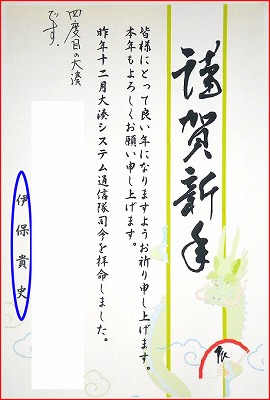 謹賀新年
皆様にとって良い年になりますようお祈り申し上げます。
本年もよろしくお願い申し上げます。
昨年十二月大湊システム通信隊司令を拝命しました。
四度目の大湊
です。
伊保貴史